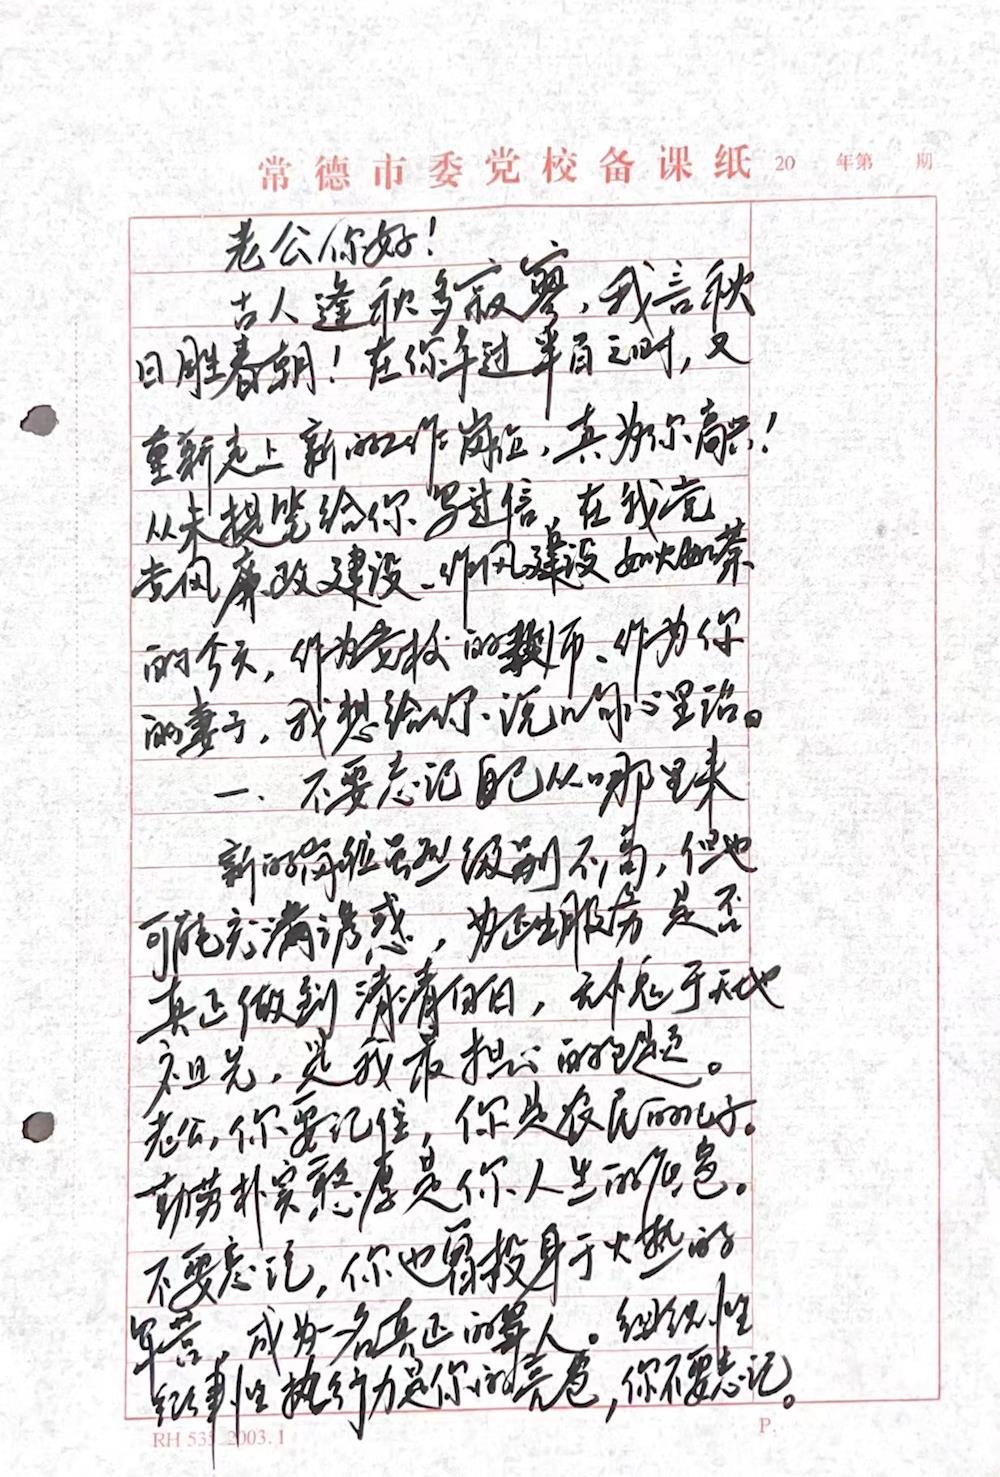 常德市委党校备课纸 20 年第 期
老公你好!
古人逢秋多寂寥,我言秋
日胜春朝!在你年过半百之时,又
重新走上新的工作岗位,真为你高兴!
从未提笔给你写过信,在我党
党风廉政建设、作风建设如火如荼
的今天,作为党校的教师、作为你
的妻子,我想给你说几句心里话。
一、不要忘记自己从哪里来
新的岗位虽然级别不高,但也
可能充满诱惑,为医生服务是否
真正做到清清白白,无愧于天地
祖先,是我最担心的问题。
老公,你要记住,你是农民的儿子。
勤劳朴实憨厚是你人生的底色。
不要忘记,你也曾投身于火热的
军营,成为一名真正的军人。组织性
纪律性执行力是你的亮色,你不要忘记。
RH 535 2003.1
P.